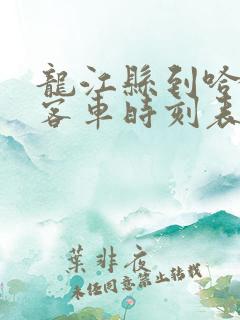 龍江縣到哈
客車時刻表
葉非夜
未经同意禁止转载